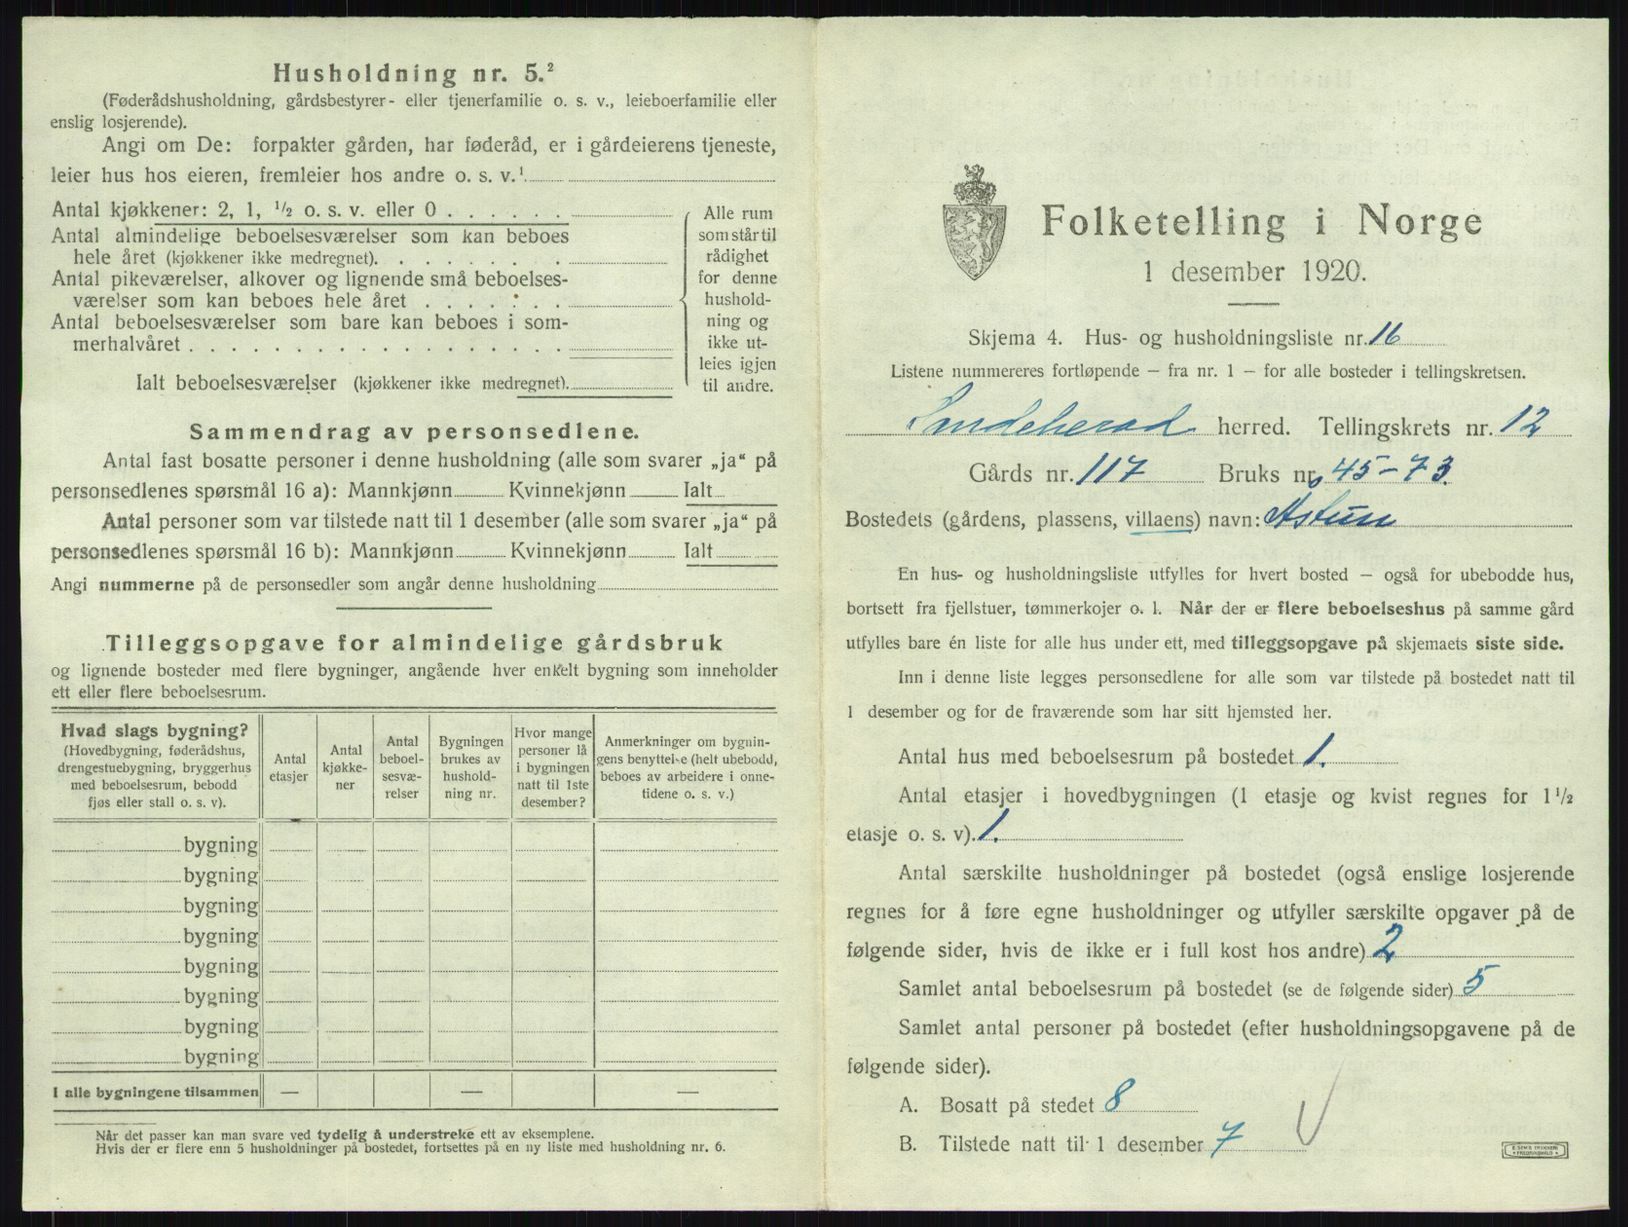 Husholdning nr. 5.²
(Føderådshusholdning, gårdsbestyrer- eller tjenerfamilie o. s. v., leieboerfamilie eller
enslig losjerende).
Angi om De: forpakter gården, har føderåd, er i gårdeierens tjeneste,
leier hus hos eieren, fremleier hos andre o. s. v.¹
Antal kjøkkener: 2, 1, ½ o. s. v. eller 0
Antal almindelige beboelsesværelser som kan beboes
hele året (kjøkkener ikke medregnet).
Antal pikeværelser, alkover og lignende små beboelses-
værelser som kan beboes hele året
Antal beboelsesværelser som bare kan beboes i som-
merhalvåret
Ialt beboelsesværelser (kjøkkener ikke medregnet).
Alle rum
som står til
rådighet
for denne
hushold-
ning og
ikke ut-
leies igjen
til andre.
Sammendrag av personsedlene.
Antal fast bosatte personer i denne husholdning (alle som svarer „ja“ på
personsedlenes spørsmål 16 a): Mannkjønn Kvinnekjønn Ialt
Antal personer som var tilstede natt til 1 desember (alle som svarer „ja“ på
personsedlenes spørsmål 16 b): Mannkjønn Kvinnekjønn Ialt
Angi nummerne på de personsedler som angår denne husholdning
Tilleggsopgave for almindelige gårdsbruk
og lignende bosteder med flere bygninger, angående hver enkelt bygning som inneholder
ett eller flere beboelsesrum.
Hvad slags bygning?
(Hovedbygning, føderådshus,
drengestuebygning, bryggerhus
med beboelsesrum, bebodd
fjøs eller stall o. s. v).
Antal
etasjer
Antal
kjøkke-
ner
Antal
beboel-
sesvæ-
relser
Bygningen
brukes av
hushold-
ning nr.
Hvor mange
personer lå
i bygningen
natt til 1ste
desember?
Anmerkninger om bygnin-
gens benyttelse (helt ubebodd,
beboes av arbeidere i onne-
tidene o. s. v.)
bygning
bygning
bygning
bygning
bygning
bygning
bygning
bygning
I alle bygningene tilsammen — — —
Når det passer kan man svare ved tydelig å understreke ett av eksemplene.
Hvis der er flere enn 5 husholdninger på bostedet, fortsettes på en ny liste med husholdning nr. 6.
Folketelling i Norge
1 desember 1920.
Skjema 4. Hus- og husholdningsliste nr. 16
Listene nummereres fortløpende — fra nr. 1 — for alle bosteder i tellingskretsen.
Sundeherad herred. Tellingskrets nr. 12
Gårds nr. 117 Bruks nr. 45-73
Bostedets (gårdens, plassens, villaens) navn: Åstun
En hus- og husholdningsliste utfylles for hvert bosted — også for ubebodde hus,
bortsett fra fjellstuer, tømmerkojer o. l. Når der er flere beboelseshus på samme gård
utfylles bare én liste for alle hus under ett, med tilleggsopgave på skjemaets siste side.
Inn i denne liste legges personsedlene for alle som var tilstede på bostedet natt til
1 desember og for de fraværende som har sitt hjemsted her.
Antal hus med beboelsesrum på bostedet 1.
Antal etasjer i hovedbygningen (1 etasje og kvist regnes for 1½
etasje o. s. v). 1.
Antal særskilte husholdninger på bostedet (også enslige losjerende
regnes for å føre egne husholdninger og utfyller særskilte opgaver på de
følgende sider, hvis de ikke er i full kost hos andre) 2
Samlet antal beboelsesrum på bostedet (se de følgende sider) 5
Samlet antal personer på bostedet (efter husholdningsopgavene på de
følgende sider).
A. Bosatt på stedet 8
B. Tilstede natt til 1 desember 7